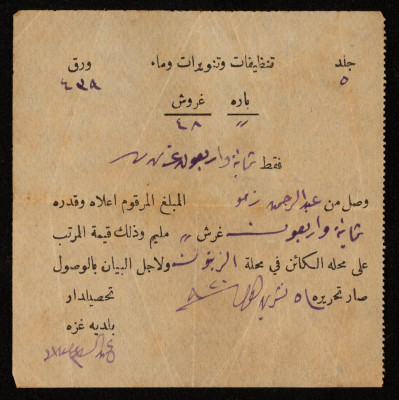 جلد تنظيفات وتنويرات وماء ورق
٥ ٤٣٩
باره غروش
〃 ٤٨
فقط ثمانية واربعون غرش
وصل من عبدالرحمن زمو المبلغ المرقوم اعلاه وقدره
ثمانية واربعون غرش 〃 مليم وذلك قيمة المرتب
على محله الكائن في محلة الزيتون ولاجل البيان بالوصول
صار تحريره ٥١ تشرين تحصيلدار
بلديه غزه